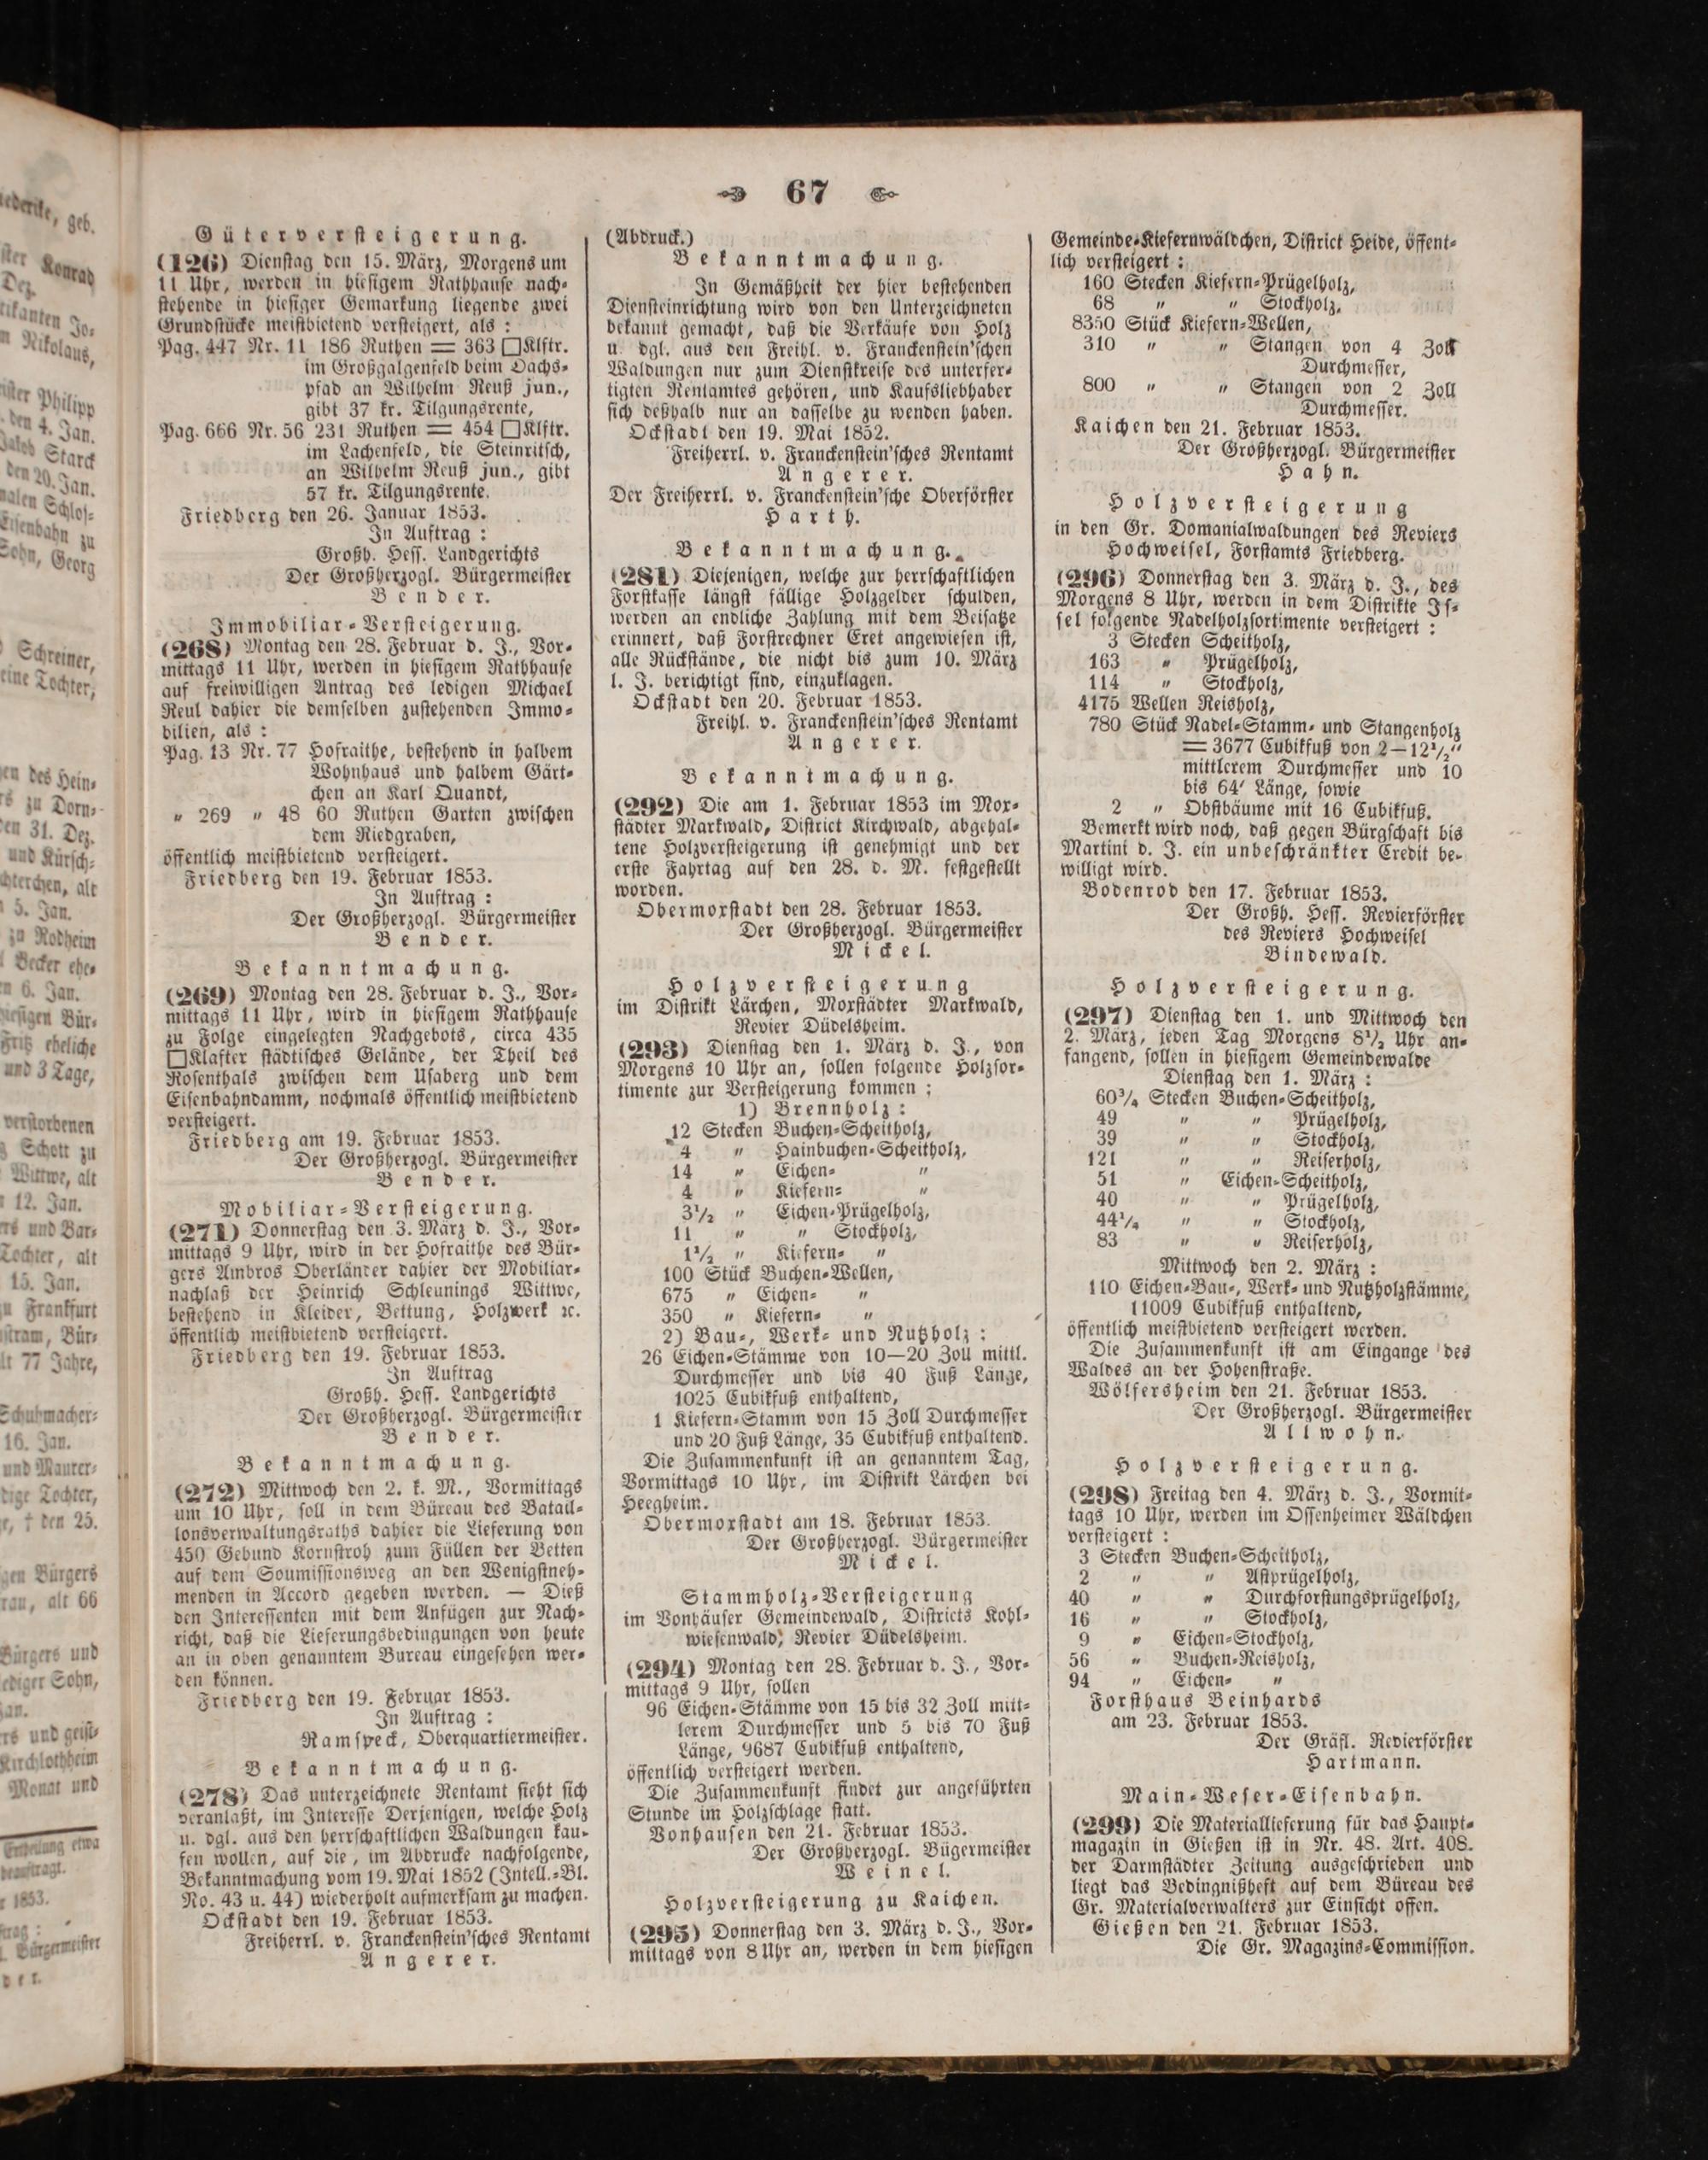 67
Güterversteigerung.
(126) Dienstag den 15. März, Morgens um
11 Uhr, werden in hiesigem Rathhause nach-
stehende in hiesiger Gemarkung liegende zwei
Grundstücke meistbietend versteigert, als :
Pag. 447 Nr. 11 186 Ruthen = 363 □Klftr.
im Großgalgenfeld beim Dachs-
pfad an Wilhelm Reuß jun.,
gibt 37 kr. Tilgungsrente,
Pag. 666 Nr. 56 231 Ruthen = 454 □Klftr.
im Lachenfeld, die Steinritsch,
an Wilhelm Reuß jun., gibt
57 kr. Tilgungsrente.
Friedberg den 26. Januar 1853.
In Auftrag :
Großh. Hess. Landgerichts
Der Großherzogl. Bürgermeister
Bender.
Immobiliar-Versteigerung.
(268) Montag den 28. Februar d. J., Vor-
mittags 11 Uhr, werden in hiesigem Rathhause
auf freiwilligen Antrag des ledigen Michael
Reul dahier die demselben zustehenden Immo-
bilien, als :
Pag. 13 Nr. 77 Hofraithe, bestehend in halbem
Wohnhaus und halbem Gärt-
chen an Karl Quandt,
" 269 " 48 60 Ruthen Garten zwischen
dem Riedgraben,
öffentlich meistbietend versteigert.
Friedberg den 19. Februar 1853.
In Auftrag :
Der Großherzogl. Bürgermeister
Bender.
Bekanntmachung.
(269) Montag den 28. Februar d. J., Vor-
mittags 11 Uhr, wird in hiesigem Rathhause
zu Folge eingelegten Nachgebots, circa 435
□Klafter städtisches Gelände, der Theil des
Rosenthals zwischen dem Usaberg und dem
Eisenbahndamm, nochmals öffentlich meistbietend
versteigert.
Friedberg am 19. Februar 1853.
Der Großherzogl. Bürgermeister
Bender.
Mobiliar-Versteigerung.
(271) Donnerstag den 3. März d. J., Vor-
mittags 9 Uhr, wird in der Hofraithe des Bür-
gers Ambros Oberländer dahier der Mobiliar-
nachlaß der Heinrich Schleunings Wittwe,
bestehend in Kleider, Bettung, Holzwerk ꝛc.
öffentlich meistbietend versteigert.
Friedberg den 19. Februar 1853.
In Auftrag
Großh. Hess. Landgerichts
Der Großherzogl. Bürgermeister
Bender.
Bekanntmachung.
(272) Mittwoch den 2. k. M., Vormittags
um 10 Uhr, soll in dem Büreau des Batail-
lonsverwaltungsraths dahier die Lieferung von
450 Gebund Kornstroh zum Füllen der Betten
auf dem Soumissionsweg an den Wenigstneh-
menden in Accord gegeben werden. — Dieß
den Interessenten mit dem Anfügen zur Nach-
richt, daß die Lieferungsbedingungen von heute
an in oben genanntem Bureau eingesehen wer-
den können.
Friedberg den 19. Februar 1853.
In Auftrag :
Ramspeck, Oberquartiermeister.
Bekanntmachung.
(278) Das unterzeichnete Rentamt sieht sich
veranlaßt, im Interesse Derjenigen, welche Holz
u. dgl. aus den herrschaftlichen Waldungen kau-
fen wollen, auf die, im Abdrucke nachfolgende,
Bekanntmachung vom 19. Mai 1852 (Intell.-Bl.
No. 43 u. 44) wiederholt aufmerksam zu machen.
Ockstadt den 19. Februar 1853.
Freiherrl. v. Franckenstein'sches Rentamt
Angerer.
(Abdruck.)
Bekanntmachung.
In Gemäßheit der hier bestehenden
Diensteinrichtung wird von den Unterzeichneten
bekannt gemacht, daß die Verkäufe von Holz
u. dgl. aus den Freihl. v. Franckenstein'schen
Waldungen nur zum Dienstkreise des unterfer-
tigten Rentamtes gehören, und Kaufsliebhaber
sich deßhalb nur an dasselbe zu wenden haben.
Ockstadt den 19. Mai 1852.
Freiherrl. v. Franckenstein'sches Rentamt
Angerer.
Der Freiherrl. v. Franckenstein'sche Oberförster
Harth.
Bekanntmachung.
(281) Diejenigen, welche zur herrschaftlichen
Forstkasse längst fällige Holzgelder schulden,
werden an endliche Zahlung mit dem Beisatze
erinnert, daß Forstrechner Eret angewiesen ist,
alle Rückstände, die nicht bis zum 10. März
l. J. berichtigt sind, einzuklagen.
Ockstadt den 20. Februar 1853.
Freihl. v. Franckenstein'sches Rentamt
Angerer.
Bekanntmachung.
(292) Die am 1. Februar 1853 im Mox-
städter Markwald, District Kirchwald, abgehal-
tene Holzversteigerung ist genehmigt und der
erste Fahrtag auf den 28. d. M. festgestellt
worden.
Obermoxstadt den 28. Februar 1853.
Der Großherzogl. Bürgermeister
Mickel.
Holzversteigerung
im Distrikt Lärchen, Moxstädter Markwald,
Revier Düdelsheim.
(293) Dienstag den 1. März d. J., von
Morgens 10 Uhr an, sollen folgende Holzsor-
timente zur Versteigerung kommen ;
1) Brennholz :
12 Stecken Buchen-Scheitholz,
4 " Hainbuchen-Scheitholz,
14 " Eichen- "
4 " Kiefern- "
3½ " Eichen-Prügelholz,
11 " " Stockholz,
1½ " Kiefern- "
100 Stück Buchen-Wellen,
675 " Eichen- "
350 " Kiefern- "
2) Bau-, Werk- und Nutzholz :
26 Eichen-Stämme von 10—20 Zoll mittl.
Durchmesser und bis 40 Fuß Länge,
1025 Cubikfuß enthaltend,
1 Kiefern-Stamm von 15 Zoll Durchmesser
und 20 Fuß Länge, 35 Cubikfuß enthaltend.
Die Zusammenkunft ist an genanntem Tag,
Vormittags 10 Uhr, im Distrikt Lärchen bei
Heegheim.
Obermoxstadt am 18. Februar 1853.
Der Großherzogl. Bürgermeister
Mickel.
Stammholz-Versteigerung
im Vonhäuser Gemeindewald, Districts Kohl-
wiesenwald, Revier Düdelsheim.
(294) Montag den 28. Februar d. J., Vor-
mittags 9 Uhr, sollen
96 Eichen-Stämme von 15 bis 32 Zoll mitt-
lerem Durchmesser und 5 bis 70 Fuß
Länge, 9687 Cubikfuß enthaltend,
öffentlich versteigert werden.
Die Zusammenkunft findet zur angeführten
Stunde im Holzschlage statt.
Vonhausen den 21. Februar 1853.
Der Großherzogl. Bügermeister
Weinel.
Holzversteigerung zu Kaichen.
(295) Donnerstag den 3. März d. J., Vor-
mittags von 8 Uhr an, werden in dem hiesigen
Gemeinde-Kiefernwäldchen, District Heide, öffent-
lich versteigert :
160 Stecken Kiefern-Prügelholz,
68 " " Stockholz,
8350 Stück Kiefern-Wellen,
310 " " Stangen von 4 Zoll
Durchmesser,
800 " " Stangen von 2 Zoll
Durchmesser.
Kaichen den 21. Februar 1853.
Der Großherzogl. Bürgermeister
Hahn.
Holzversteigerung
in den Gr. Domanialwaldungen des Reviers
Hochweisel, Forstamts Friedberg.
(296) Donnerstag den 3. März d. J., des
Morgens 8 Uhr, werden in dem Distrikte Is-
sel folgende Nadelholzsortimente versteigert :
3 Stecken Scheitholz,
163 " Prügelholz,
114 " Stockholz,
4175 Wellen Reisholz,
780 Stück Nadel-Stamm- und Stangenholz
= 3677 Cubikfuß von 2—12½"
mittlerem Durchmesser und 10
bis 64' Länge, sowie
2 " Obstbäume mit 16 Cubikfuß.
Bemerkt wird noch, daß gegen Bürgschaft bis
Martini d. J. ein unbeschränkter Credit be-
willigt wird.
Bodenrod den 17. Februar 1853.
Der Großh. Hess. Revierförster
des Reviers Hochweisel
Bindewald.
Holzversteigerung.
(297) Dienstag den 1. und Mittwoch den
2. März, jeden Tag Morgens 8½ Uhr an-
fangend, sollen in hiesigem Gemeindewalde
Dienstag den 1. März :
60¾ Stecken Buchen-Scheitholz,
49 " " Prügelholz,
39 " " Stockholz,
121 " " Reiserholz,
51 " Eichen-Scheitholz,
40 " " Prügelholz,
44¼ " " Stockholz,
83 " " Reiserholz,
Mittwoch den 2. März :
110 Eichen-Bau-, Werk- und Nutzholzstämme,
11009 Cubikfuß enthaltend,
öffentlich meistbietend versteigert werden.
Die Zusammenkunft ist am Eingange des
Waldes an der Hohenstraße.
Wölfersheim den 21. Februar 1853.
Der Großherzogl. Bürgermeister
Allwohn.
Holzversteigerung.
(298) Freitag den 4. März d. J., Vormit-
tags 10 Uhr, werden im Ossenheimer Wäldchen
versteigert :
3 Stecken Buchen-Scheitholz,
2 " " Astprügelholz,
40 " " Durchforstungsprügelholz,
16 " " Stockholz,
9 " Eichen-Stockholz,
56 " Buchen-Reisholz,
94 " Eichen- "
Forsthaus Beinhards
am 23. Februar 1853.
Der Gräfl. Revierförster
Hartmann.
Main-Weser-Eisenbahn.
(299) Die Materiallieferung für das Haupt-
magazin in Gießen ist in Nr. 48. Art. 408.
der Darmstädter Zeitung ausgeschrieben und
liegt das Bedingnißheft auf dem Büreau des
Gr. Materialverwalters zur Einsicht offen.
Gießen den 21. Februar 1853.
Die Gr. Magazins-Commission.